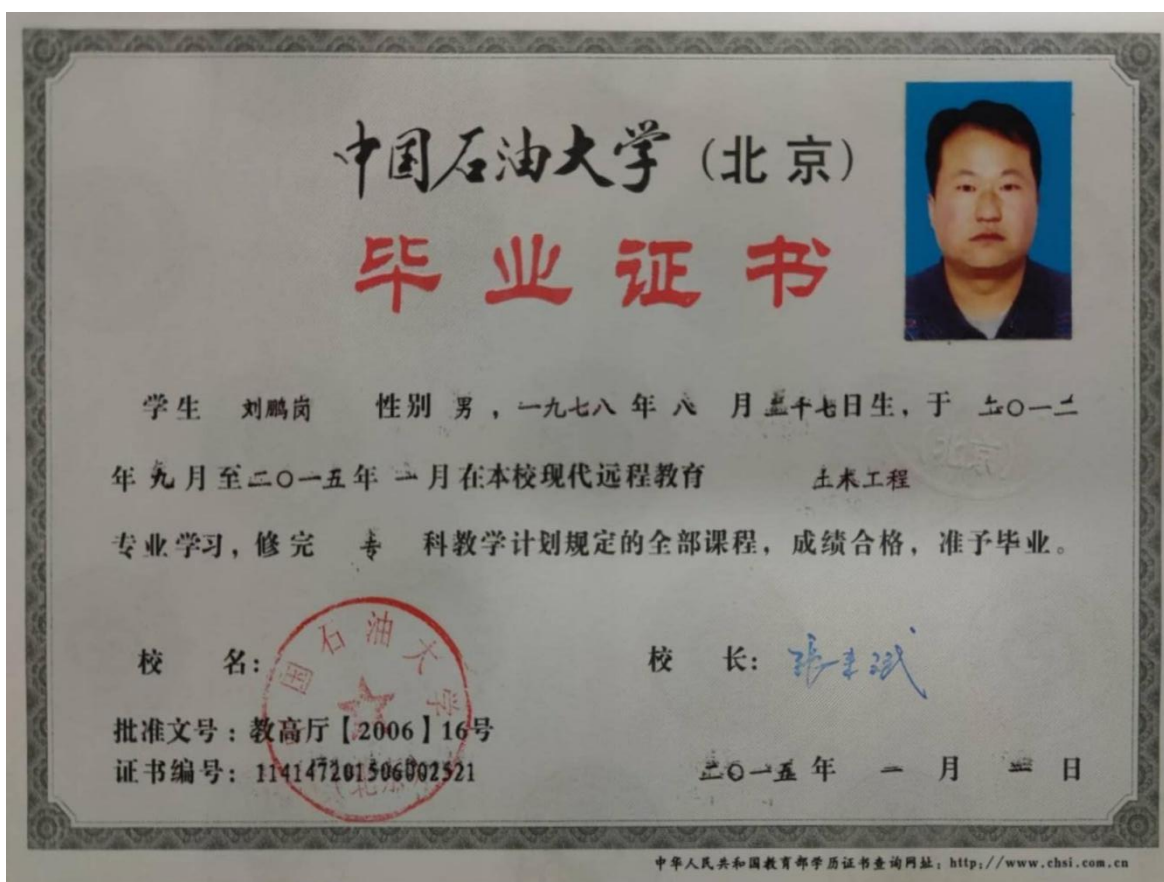 中国石油大学（北京）
毕业证书
学生 刘鹏岗 性别 男，一九七八年 八 月 二十七日生，于 二〇一二
年 九 月至二〇一五年 一 月在本校现代远程教育 土木工程
专业学习，修完 专 科教学计划规定的全部课程，成绩合格，准予毕业。
校 名： 校 长：张来斌
国石油大学
批准文号：教高厅【2006】16号
证书编号：114147201506002521
二〇一五年 一 月 日
（北京）
中华人民共和国教育部学历证书查询网址：http://www.chsi.com.cn